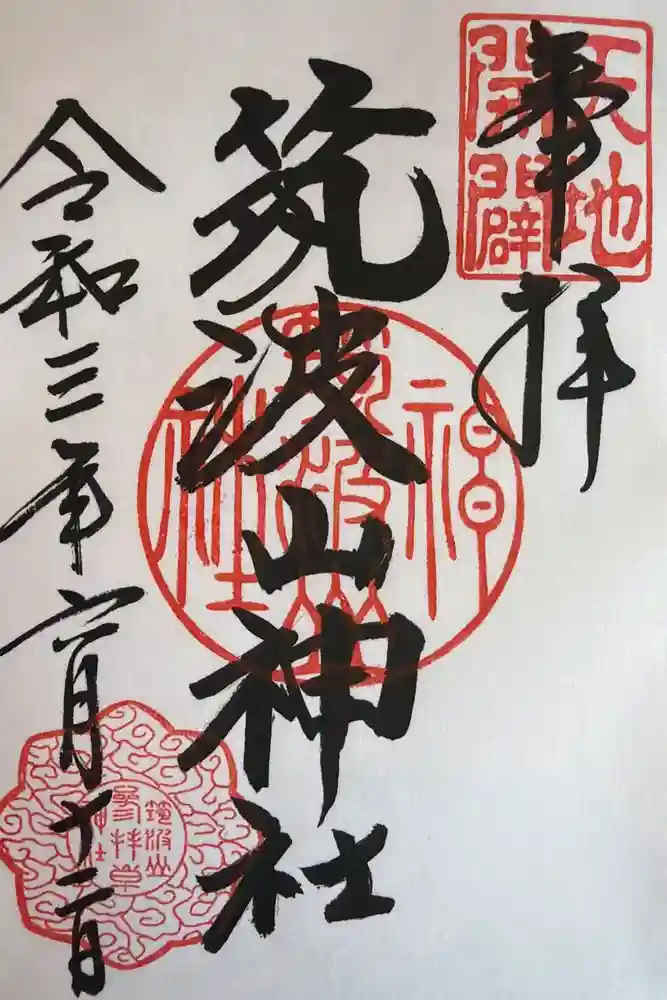 天地
開闢
奉拝
筑波山神社
神
筑波山
社
令和三年六月十二日
筑波山
参拝章
神社